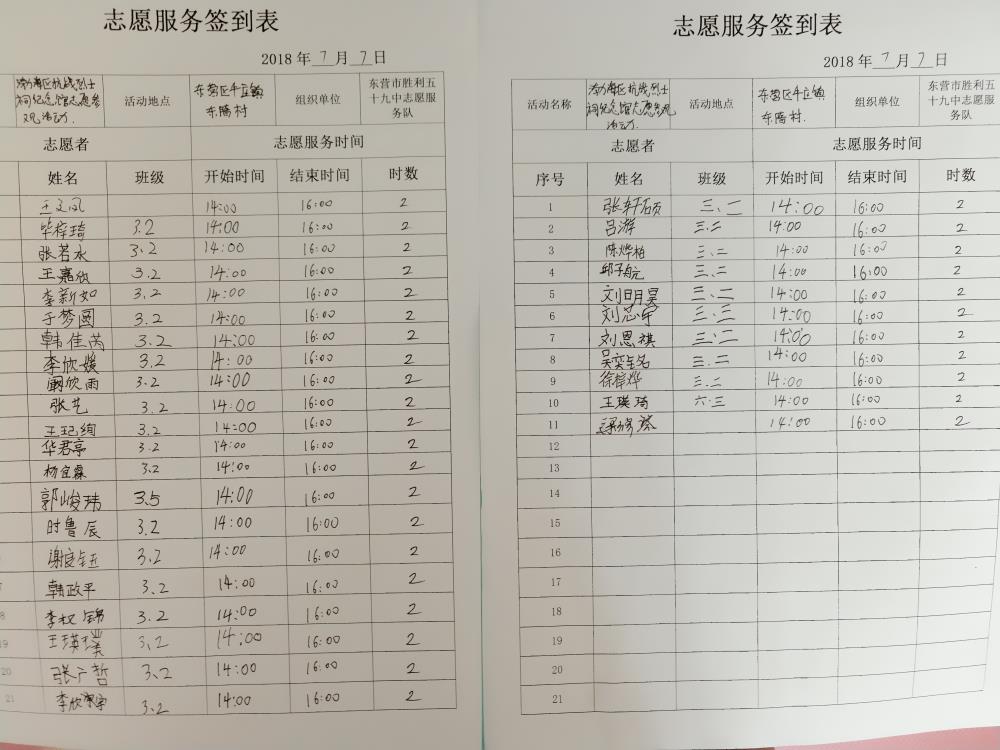 志愿服务签到表
2018 年 7 月 7 日
渤海区抗战烈士
祠纪念馆志愿参
观活动.
活动地点
东营区牛庄镇
东隋村
组织单位
东营市胜利五
十九中志愿服
务队
志愿者 志愿服务时间
姓名 班级 开始时间 结束时间 时数
王文凤 14:00 16:00 2
毕梓琦 3.2 14:00 16:00 2
张若水 3.2 14:00 16:00 2
王嘉欣 3.2 14:00 16:00 2
李新如 3.2 14:00 16:00 2
于梦圆 3.2 14:00 16:00 2
韩佳芮 3.2 14:00 16:00 2
李欣媛 3.2 14:00 16:00 2
欣雨 3.2 14:00 16:00 2
张艺 3.2 14:00 16:00 2
王玘绚 3.2 14:00 16:00 2
华君亭 3.2 14:00 16:00 2
杨宜霖 3.2 14:00 16:00 2
郭峻玮 3.5 14:00 16:00 2
时鲁辰 3.2 14:00 16:00 2
3.2 14:00 16:00 2
韩政平 3.2 14:00 16:00 2
李权锦 3.2 14:00 16:00 2
19 王瑛璞 3.2 14:00 16:00 2
20 张广哲 3.2 14:00 16:00 2
21 李欣 3.2 14:00 16:00 2
志愿服务签到表
2018 年 7 月 7 日
活动名称
渤海区抗战烈士
祠纪念馆志愿参观
活动.
活动地点
东营区牛庄镇
东隋村
组织单位
东营市胜利五
十九中志愿服务
队
志愿者 志愿服务时间
序号 姓名 班级 开始时间 结束时间 时数
1 张轩硕 三、二 14:00 16:00 2
2 吕游 三.二 14:00 16:00 2
3 陈烨柏 三、二 14:00 16:00 2
4 邱子航 三、二 14:00 16:00 2
5 刘明昊 三、二 14:00 16:00 2
6 刘芯宇 三、三 14:00 16:00 2
7 刘恩祺 三、二 14:00 16:00 2
8 三.二 14:00 16:00 2
9 徐梓烨 三.二 14:00 16:00 2
10 王瑛琦 六.三 14:00 16:00 2
11 梁修 14:00 16:00 2
12
13
14
15
16
17
18
19
20
21